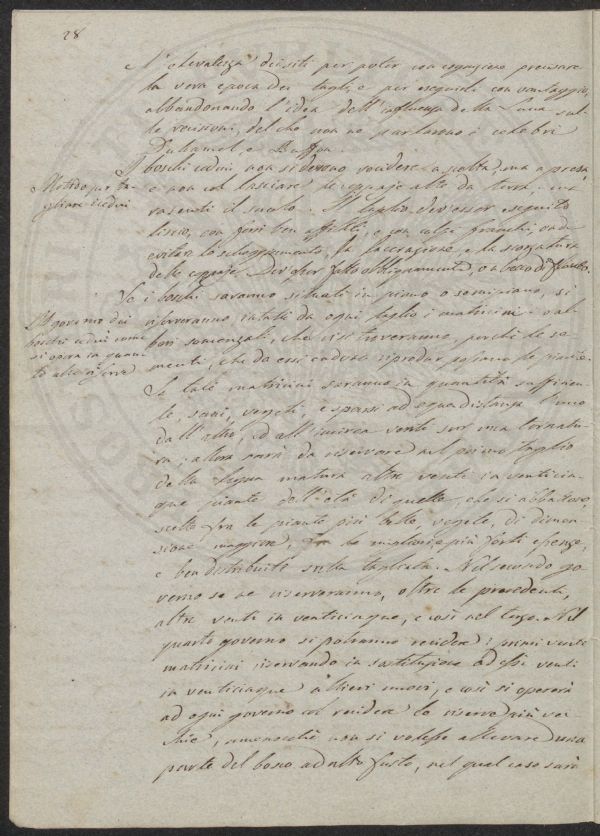 28
e l'elevatezza dei siti per poter con cognizione precisare
la vera epoca dei tagli, e per eseguirli con vantaggio,
abbandonando l'idea dell'influenza della Luna sul-
le recisioni, del che non ne parlarono i celebri
Duhamel, e Buffon.
Metodo per ta-
gliare i cedui
I boschi cedui non si devono recidere a , ma a presa
e non col lasciare le cepaje alte da terra, ma
rasenti il suolo. Il taglio dev'esser eseguito
liscio, con ferri ben affilati, e con colpi franchi, onde
evitare lo scheggiamento, la lacerazione, e la scorzatura
delle cepaje. Dev'esser fatto obbliquamente, o a becco di flauto.
Nel governo dei
boschi cedui come
si opera in quan-
to alle riserve
Se i boschi saranno situati in piano o semipiano, si
riserveranno intatti da ogni taglio i matricini o al-
beri semenzali, che visi troveranno, perchè le se-
menti, che da essi cadono riprodur possano le piante.
Se tali matricini saranno in quantità sufficien-
te, sani, vegeti, e sparsi ad egua distanza l'uno
dall'altro, ed all'incirca venti per una tornatu-
ra, allora sarà da riservare nel primo taglio
della legna matura altre venti in venticin-
que piante dell'età di quelle, che si abbattono,
scelte fra le piante più belle, vegete, di dimen-
sione maggiore, fra le matricine più forti
e ben distribuite sulla tagliata. Nel secondo go-
verno se ne riserveranno, oltre le precedenti,
altre venti in venticinque, e così nel terzo. Nel
quarto governo si potranno recidere i primi venti
matricini riservando in sostituzione ad essi venti
in venticinque allievi nuovi, e così si opererà
ad ogni governo col recidere le riserve più vec-
chie, amenochè non si volesse allevare una
parte del bosco ad alto fusto, nel qual caso sarà